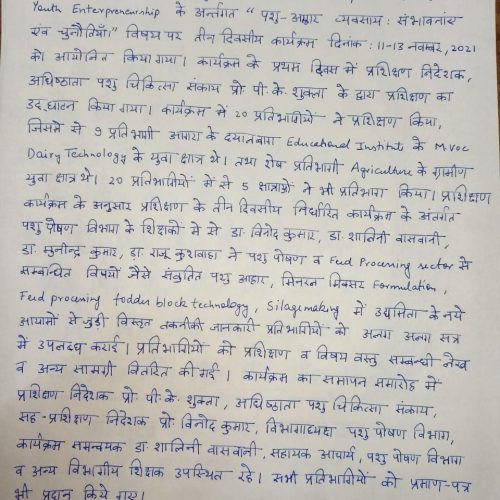 Youth Enterpreneurship के अर्न्तगत " पशु-आहार व्यवसाय: संभावनाएं
एवं चुनौतियाँ।" विषय पर तीन दिवसीय कार्यक्रम दिनांक : 11-13 नवम्बर, 2021
को आयोजित किया गया। कार्यक्रम के प्रथम दिवस में प्रशिक्षण निदेशक,
अधिष्ठाता पशु चिकित्सा संकाय प्रो. पी. के. शुक्ला के द्वारा प्रशिक्षण का
उद्घाटन किया गया। कार्यक्रम में 20 प्रतिभागियों ने प्रशिक्षण किया,
जिसमे से 9 प्रतिभागी आगरा के दयालबाग Educational Institute के M.voc
Dairy Technology के युवा छात्र थे। तथा शेष प्रतिभागी Agriculture के ग्रामीण
युवा छात्र थे। 20 प्रतिभागियों में से 5 छात्राओं ने भी प्रतिभाग किया। प्रशिक्षण
कार्यक्रम के अनुसार प्रशिक्षण के तीन दिवसीय निर्धारित कार्यक्रम के अंतर्गत
पशु पोषण विभाग के शिक्षकों में से डा. विनोद कुमार, डा. शालिनी वासवानी,
डा. मुनीन्द्र कुमार, डा. राजू कुशवाहा ने पशु पोषण व Feed Processing sector से
सम्बन्धित विषयों जैसे संतुलित पशु आहार, मिनरल मिक्सर Formulation,
Feed processing fodder block technology, Silage making में उद्यमिता के नये
आयामों से जुड़ी विस्तृत तकनीकी जानकारी प्रतिभागियों को अलग अलग सत्र
में उपलब्ध कराई। प्रतिभागियों को प्रशिक्षण व विषय वस्तु सम्बन्धी लेख
व अन्य सामग्री वितरित की गई। कार्यक्रम का समापन समारोह में
प्रशिक्षण निदेशक प्रो. पी. के. शुक्ला, अधिष्ठाता पशु चिकित्सा संकाय,
सह-प्रशिक्षण निदेशक प्रो. विनोद कुमार, विभागाध्यक्ष पशु पोषण विभाग,
कार्यक्रम समन्वयक डा. शालिनी वासवानी, सहायक आचार्य, पशु पोषण विभाग
व अन्य विभागीय शिक्षक उपस्थित रहे। सभी प्रतिभागियों को प्रमाण-पत्र
भी प्रदान किये गए।